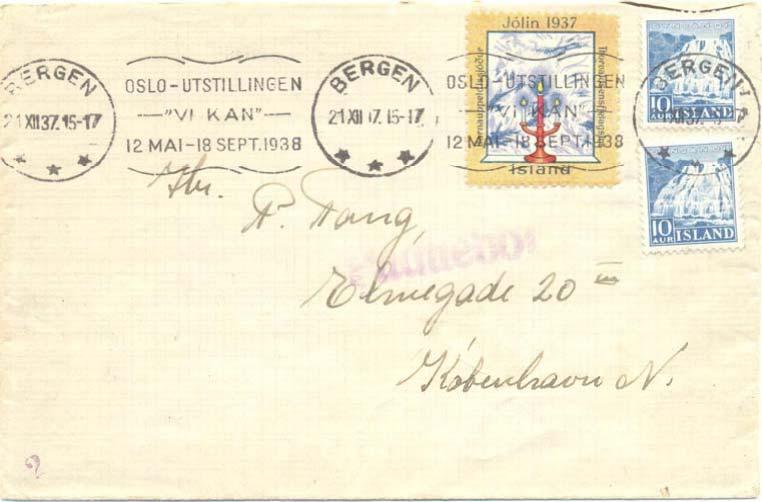 BERGEN
21 XII 37. 15-17
OSLO-UTSTILLINGEN
"VI KAN"
12 MAI-18 SEPT.1938
BERGEN
21 XII 37. 15-17
OSLO-UTSTILLINGEN
"VI KAN"
12 MAI-18 SEPT.1938
BERGEN
Jólin 1937
Thorvaldsensfélagsins
Ísland
10
AUR
ÍSLAND
10
AUR
ÍSLAND
Hr.
Elmegade 20 III
København N.
2